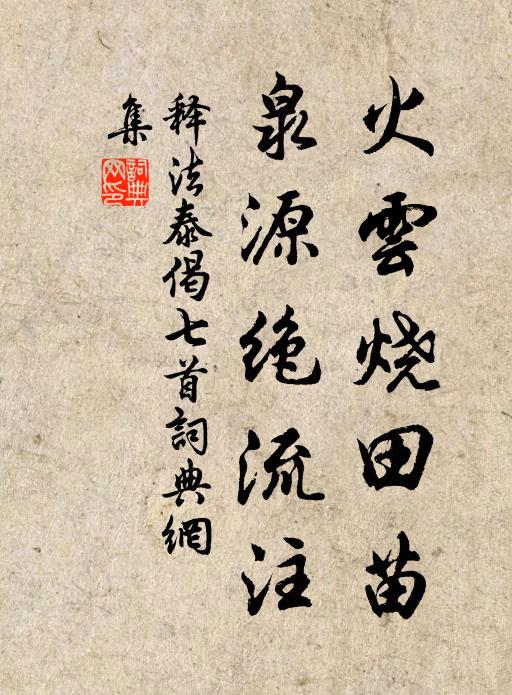 火雲烧田苗
泉源绝流注
释法泰偈七首詞典網
集
詞典网印